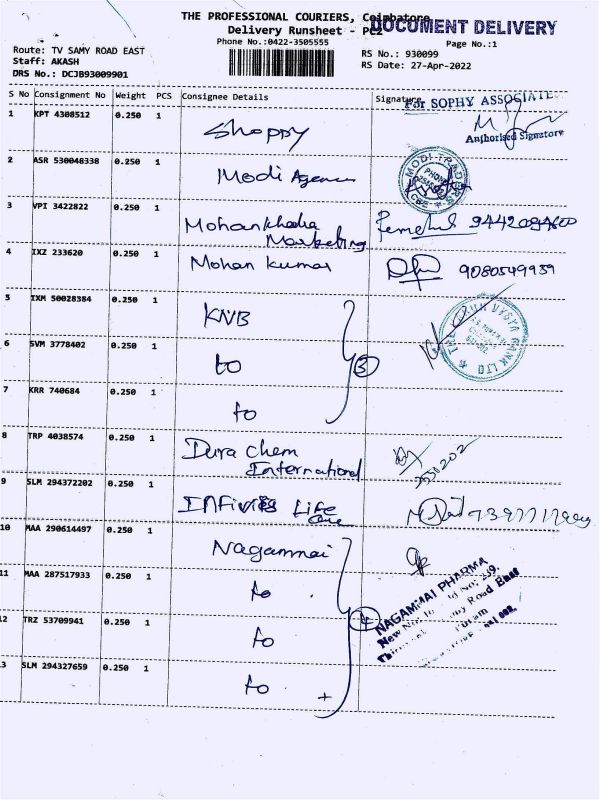 THE PROFESSIONAL COURIERS, Coimbatore
DOCUMENT DELIVERY
Delivery Runsheet - PC2
Phone No.:0422-3505555
Page No.:1
Route: TV SAMY ROAD EAST
RS No.: 930099
Staff: AKASH
RS Date: 27-Apr-2022
DRS No.: DCJB93009901
S No Consignment No Weight PCS Consignee Details Signature
For SOPHY ASSOCIATE
1 KPT 4308512 0.250 1 Shoppy
Authorised Signatory
2 ASR 530048338 0.250 1 Modi Agencies
MODI TRADERS
PHONE
CBE
3 VPI 3422822 0.250 1 Mohankhadra
Marketing
4 IXZ 233620 0.250 1 Mohan kumar 9080549959
5 IXM 50028384 0.250 1 KNB
VYSYA BANK LTD
6 SVM 3778402 0.250 1 to 3
7 KRR 740684 0.250 1 to
8 TRP 4038574 0.250 1 Dura Chem
International
9 SLM 294372202 0.250 1 Life
Care
10 MAA 290614497 0.250 1 Nagammai
NAGAMMAI PHARMA
11 MAA 287517933 0.250 1 to
Road East
12 TRZ 53709941 0.250 1 to 4
13 SLM 294327659 0.250 1 to